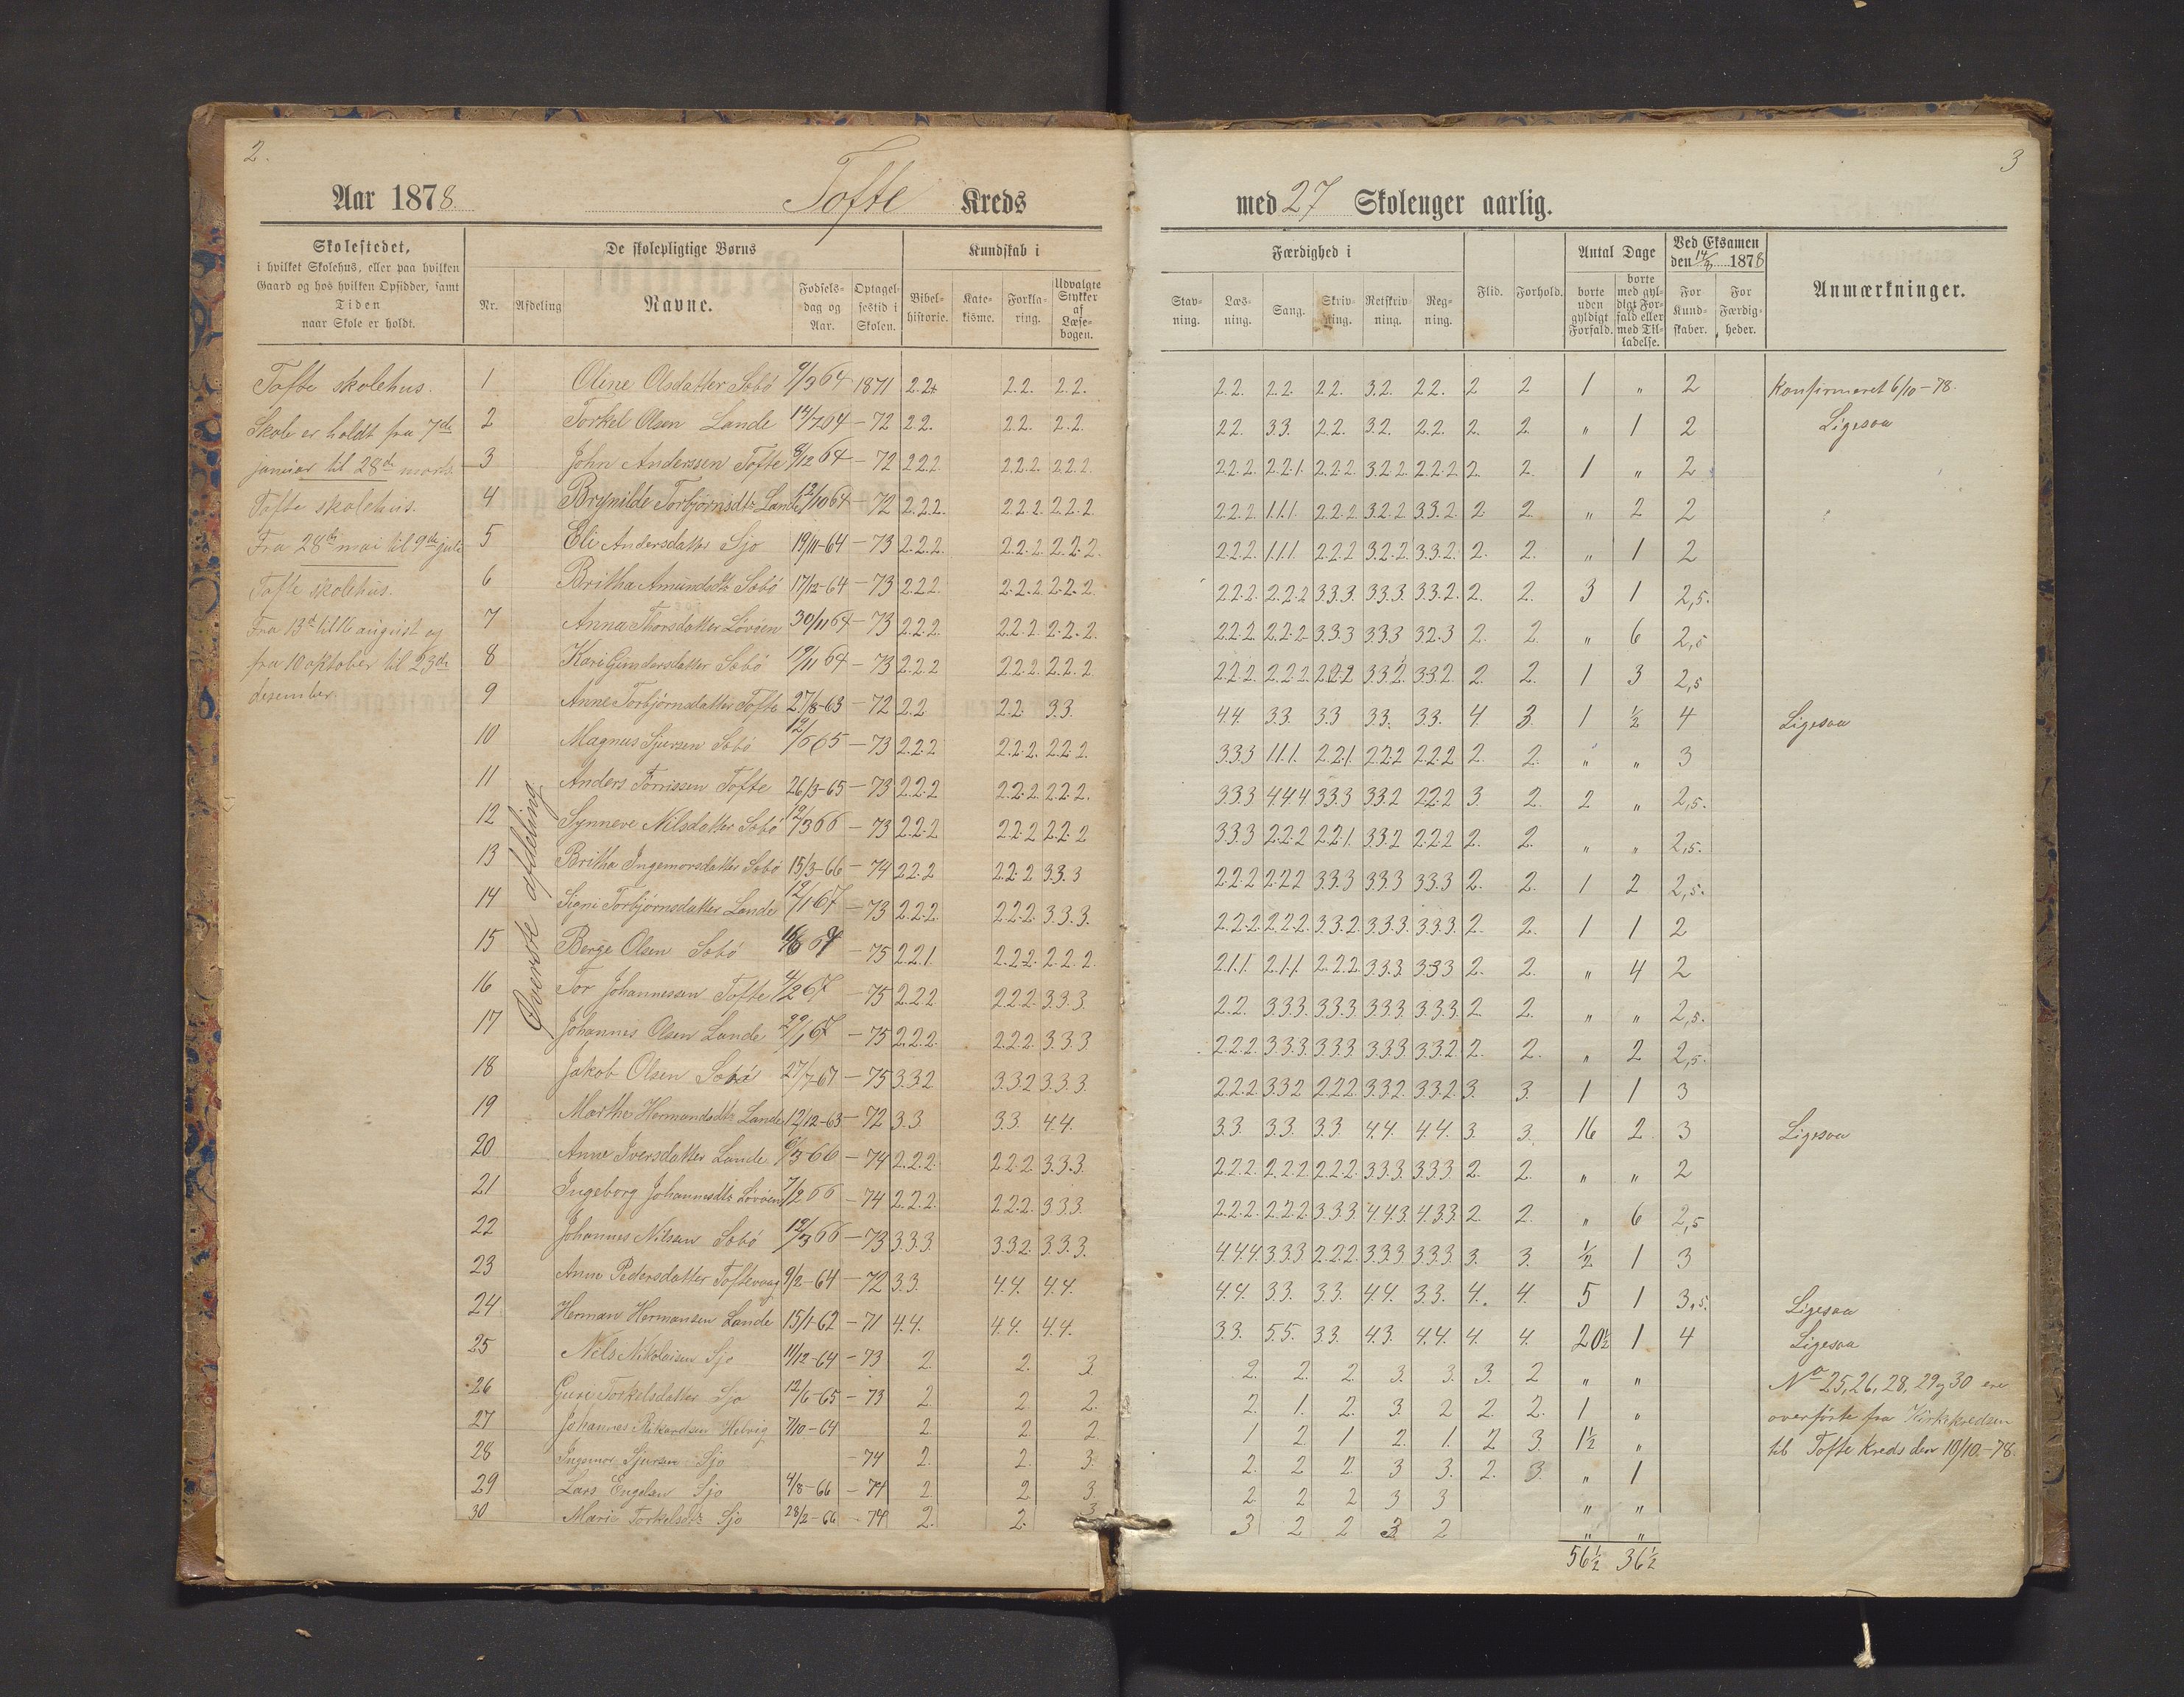 2.
Aar 1878. Tofte Kreds
Skolestedet,
i hvilket Skolehus, eller paa hvilken
Gaard og hos hvilken Opsidder, samt
Tiden
naar Skole er holdt.
De skolepligtige Børns
Nr. Afdeling Navne. Fødsels-dag og Aar. Optagelsestid i Skolen.
Kundskab i
Bibelhistorie. Katekisme. Forklaring. Udvalgte Stykker af Læsebogen.
Tofte skolehus.
Skole er holdt fra 7de
januar til 28de marts
Tofte skolehus.
Fra 28de mai til 9de juli
Tofte skolehus.
Fra 13de til 16 august og
fra 10 oktober til 23de
desember
Øverste afdeling
1 Oline Olsdatter Søbø 9/3 64 1871 2.2. 2.2. 2.2.
2 Torkel Olsen Lande 14/7 64 - 72 2.2. 2.2. 2.2.
3 John Anderssen Tofte 8/12 64 - 72 2.2.2. 2.2.2. 2.2.2.
4 Brynilde Torbjørnsdtr Lande 12/10 64 - 72 2.2.2. 2.2.2. 2.2.2.
5 Eli Andersdatter Sjo 19/11-64 - 73 2.2.2. 2.2.2 2.2.2.
6 Britha Amundsdtr Søbø 17/12-64 - 73 2.2.2. 2.2.2 2.2.2.
7 Anna Thorsdatter Løvøen 30/11 64 - 73 2.2.2. 2.2.2. 2.2.2.
8 Kari Gundersdatter Søbø 19/11 64 - 73 2.2.2 2.2.2. 2.2.2
9 Anne Torbjørnsdatter Tofte 27/8-63 - 72 2.2 2.2. 3.3.
10 Magnus Sjursen Søbø 12/6 65 - 73 2.2.2 2.2.2. 2.2.2.
11 Anders Tørrissen Tofte 26/3-65 - 73 2.2.2 2.2.2. 2.2.2.
12 Synneve Nilsdatter Søbø 12/3 66 - 73 2.2.2 2.2.2 2.2.2
13 Britha Ingemorsdatter Søbø 15/3-66 - 74 2.2.2 2.2.2 3.3.3
14 Signi Torbjørnsdatter Lande 12/1 67 - 73 2.2.2. 2.2.2. 3.3.3.
15 Berge Olsen Søbø - 75 2.2.1. 2.2.2. 2.2.2.
16 Tor Johannessen Tofte 4/2 67 - 75 2.2.2 2.2.2. 3.3.3.
17 Johannes Olsen Lande 29/1 67 - 75 2.2.2. 2.2.2. 3.3.3.
18 Jakob Olsen Søbø 27/7-67 - 75 3.3.2 3.3.2 3.3.3
19 Marthe Hermandsdtr Lande 12/12-63 - 72 3.3. 3.3. 4.4.
20 Anne Iversdatter Lande 6/3-66 - 74 2.2.2. 2.2.2. 3.3.3.
21 Ingeborg Johannesdtr Løvøen 7/2 66 - 74 2.2.2. 2.2.2. 3.3.3.
22 Johannes Nilsen Søbø 12/3 66 - 73 3.3.3. 3.3.2. 3.3.3.
23 Anne Pedersdatter Toftevaag 9/2-64 - 72 3.3. 4.4. 4.4.
24 Herman Hermansen Lande 15/1-62 - 71 4.4. 4.4. 4.4.
25 Nels Nikolaisen Sjo 11/12-64 - 73 2. 2. 3
26 Guri Torkelsdatter Sjo 12/6-65 - 73 2. 2. 2.
27 Johannes Rikardsen Helvig 7/10-64 2. 2. 2.
28 Ingemor Sjursen Sjo - 74 2. 2. 3.
29 Lars Engelsen Sjo 4/8-66 - 74 2. 2. 3.
30 Mari Torkelsdtr Sjo 28/2-66 - 74 2. 2. 3
3
med 27 Skoleuger aarlig.
Færdighed i
Stavning. Læsning. Sang. Skrivning. Retskrivning. Regning.
Flid. Forhold.
Antal Dage
borte uden gyldigt Forfald. borte med gyldigt Forfald eller med Tilladelse.
Ved Eksamen
den 14/3 1878
For Kundskaber. For Færdigheder.
Anmærkninger.
2.2. 2.2. 2.2. 3.2. 2.2. 2 2 1 " 2 Konfirmeret 6/10-78.
2.2. 3.3. 2.2. 3.2. 2.2. 2. 2. " 1 2 Ligesaa
2.2.2. 2.2.1. 2.2.2. 3.2.2. 2.2.2. 2. 2. 1 " 2
2.2.2. 1.1.1. 2.2.2 3.2.2 3.3.2. 2. 2. " 2 2
2.2.2. 1.1.1. 2.2.2 3.2.2. 3.3.2. 2. 2. " 1 2
2.2.2. 2.2.2 3.3.3. 3.3.3 3.3.2. 2. 2. 3 1 2,5.
2.2.2. 2.2.2 3.3.3 3.3.3 3.2.3 2. 2. " 6 2,5
2.2.2. 2.2.2. 2.2.2 3.3.2. 3.3.2 2. 2. 1 3 2,5
4.4. 3.3. 3.3 3.3. 3.3. 4. 3. 1 1/2 4 Ligesaa
3.3.3 1.1.1. 2.2.1. 2.2.2 2.2.2 2. 2. " " 3
3.3.3 4.4.4 3.3.3 3.3.2 2.2.2 3. 2 2 " 2,5.
3.3.3 2.2.2 2.2.1 3.3.2 2.2.2 2. 2. " " 2,5.
2.2.2 2.2.2 3.3.3 3.3.3 3.3.3 2. 2. 1 2 2,5.
2.2.2. 2.2.2. 3.3.2. 3.3.3. 3.3.3. 2. 2. 1 1 2
2.1.1. 2.1.1. 2.2.2. 3.3.3. 3.3.3 2. 2. " 4 2
2.2. 3.3.3. 3.3.3. 3.3.3. 3.3.3. 2 2. " " 2,5.
2.2.2 3.3.3 3.3.3 3.3.3. 3.3.2. 2. 2. " 2 2,5.
2.2.2 3.3.2 2.2.2 3.3.2. 3.3.2. 3. 3. 1 1 3
3.3. 3.3. 3.3. 4.4. 4.4. 3. 3. 16 2. 3 Ligesaa
2.2.2. 2.2.2 2.2.2. 3.3.3. 3.3.3 2. 2. " " 2
2.2.2. 2.2.2 3.3.3 4.4.3. 4.3.3. 2. 2. " 6 2,5
4.4.4 3.3.3 2.2.2. 3.3.3 3.3.3. 3. 3. 1/2 1 3
4.4. 3.3. 3.3. 4.4. 3.3. 4. 4. 5 1 3,5. Ligesaa
3.3. 5.5. 3.3. 4.3. 4.4. 4. 4. 20 1/2 1 4 Ligesaa
2. 2. 2. 3. 3. 3. 2 " " No 25, 26, 28, 29 og 30 ere
2. 1. 2. 3. 2 2. 2. 1 " overførte fra Kirkekredsen
1 2 1 2. 1. 2 3. 1 1/2 " til Tofte kreds den 10/10-78.
2. 2 2. 3 3. 2. 3. " 1
2. 2 2 3 3 " "
3 2 2 3 2 " "
56 1/2 36 1/2